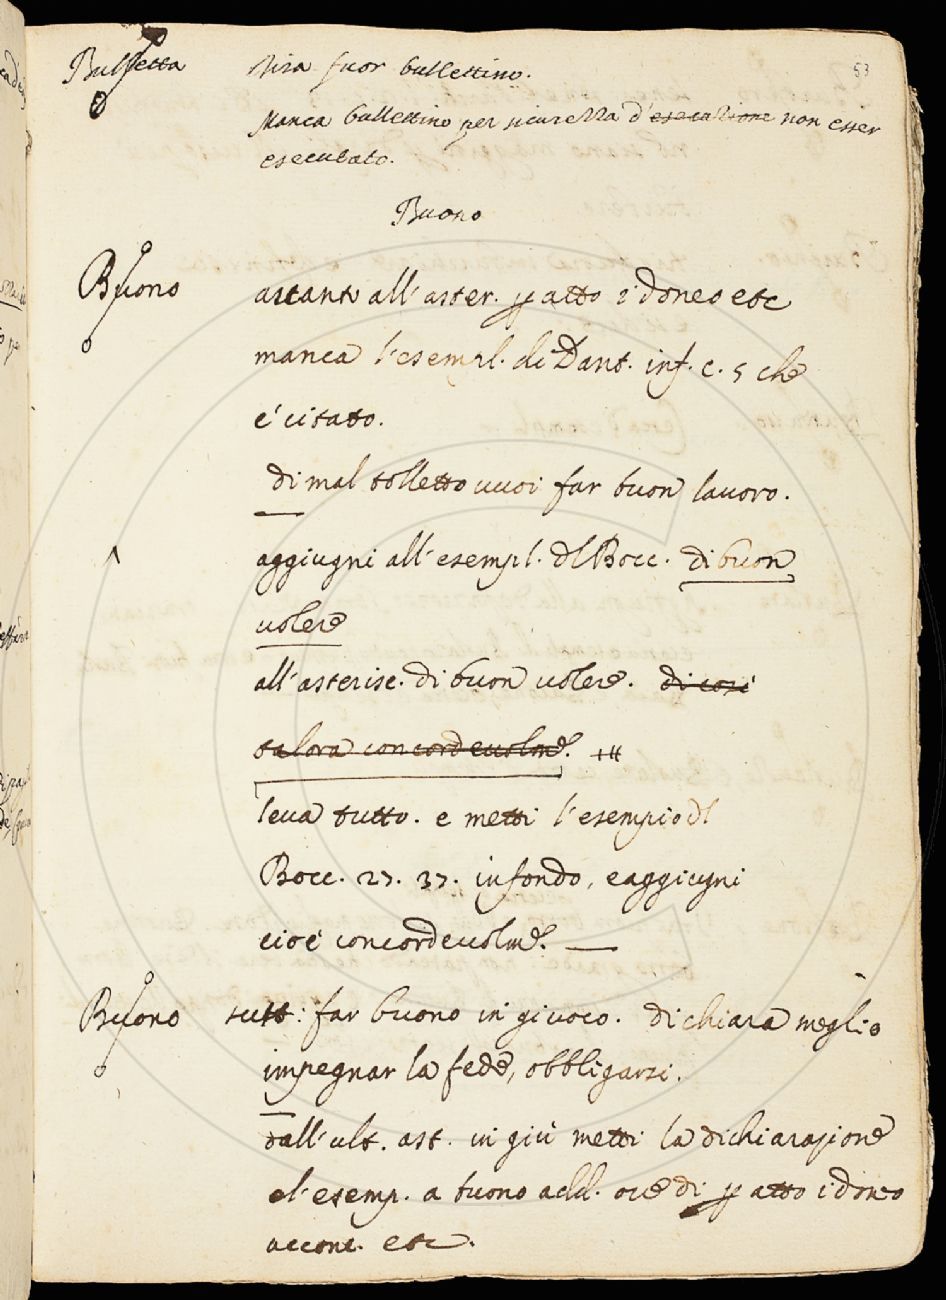 53
Bulletta Tira fuor bullettino.
Manca bullettino per sicurezza d'esecuzione non esser
esecutato.
Buono
Buono avanti all'aster. p atto idoneo etc
manca l'esempl. di Dant. inf. c. 5 che
è citato.
di mal tolletto vuoi far buon lavoro.
aggiugni all'esempl. dl Bocc. di buon
volere
all'asterisc. di buon volere. di cosi
talora concordevolmẽ.
leva tutto. e metti l'esempio dl
Bocc. 27. 37. in fondo, e aggiugni
cioè concordevolmẽ.
Buono sust: far buono in giuoco. dichiara meglio
impegnar la fede, obbligarsi.
dall'ult. ast. in giù metti la dichiarazione
el'esemp. a buono add. ove di p atto idoneo
accone. etc.